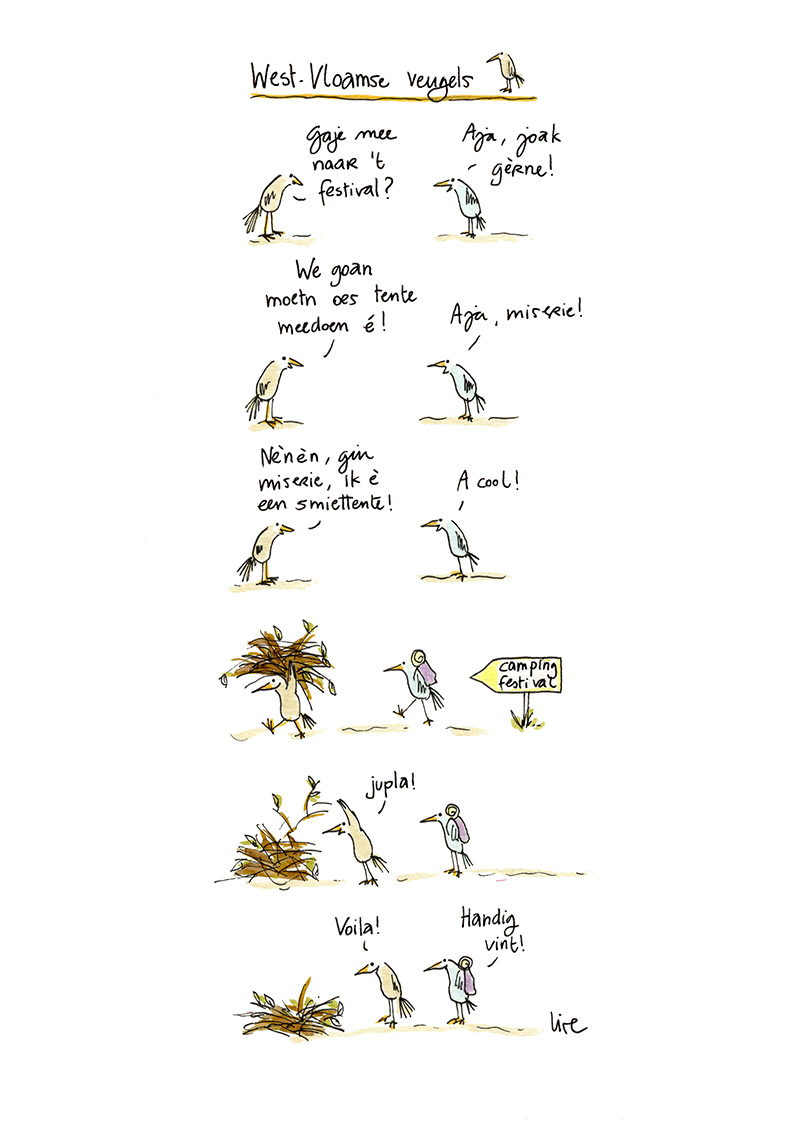 West-Vloamse veugels
Gaje mee
naar 't
festival?
Aja, joak
gèrne!
We goan
moetn oes tente
meedoen é!
Aja, miserie!
Nènèn, gin
miserie, ik è
een smiettente!
A cool!
camping
festival
jupla!
Voila!
Handig
vint!
lise